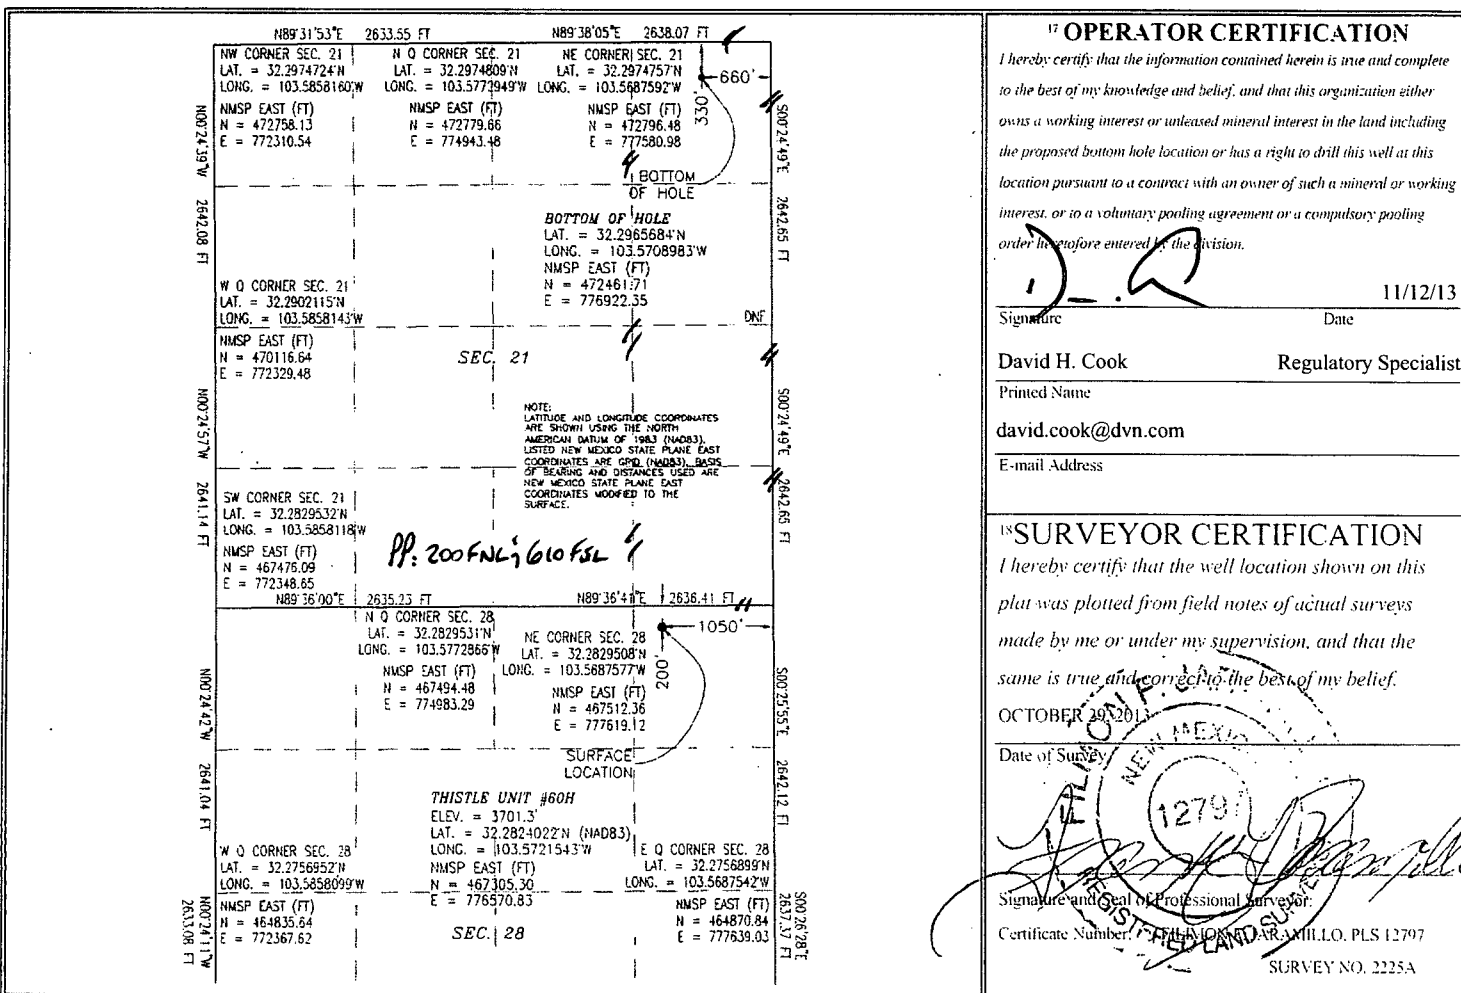 N89°31'53"E 2633.55 FT N89°38'05"E 2638.07 FT
NW CORNER SEC. 21
LAT. = 32.2974724'N
LONG. = 103.5858160'W
NMSP EAST (FT)
N = 472758.13
E = 772310.54
N Q CORNER SEC. 21
LAT. = 32.2974809'N
LONG. = 103.5772949'W
NMSP EAST (FT)
N = 472779.66
E = 774943.48
NE CORNER SEC. 21
LAT. = 32.2974757'N
LONG. = 103.5687592'W
NMSP EAST (FT)
N = 472796.48
E = 777580.98
660'
330'
BOTTOM
OF HOLE
N00°24'39"W 2642.08 FT
S00°24'49"E 2642.65 FT
BOTTOM OF HOLE
LAT. = 32.2965684'N
LONG. = 103.5708983'W
NMSP EAST (FT)
N = 472461.71
E = 776922.35
W Q CORNER SEC. 21
LAT. = 32.2902115'N
LONG. = 103.5858143'W
NMSP EAST (FT)
N = 470116.64
E = 772329.48
DNF
SEC. 21
NOTE:
LATITUDE AND LONGITUDE COORDINATES
ARE SHOWN USING THE NORTH
AMERICAN DATUM OF 1983 (NAD83).
LISTED NEW MEXICO STATE PLANE EAST
COORDINATES ARE GRID (NAD83). BASIS
OF BEARING AND DISTANCES USED ARE
NEW MEXICO STATE PLANE EAST
COORDINATES MODIFIED TO THE
SURFACE.
N00°24'57"W 2641.14 FT
S00°24'49"E 2642.65 FT
SW CORNER SEC. 21
LAT. = 32.2829532'N
LONG. = 103.5858118'W
NMSP EAST (FT)
N = 467476.09
E = 772348.65
PP: 200 FNL; 610 FSL
N89°36'00"E 2635.23 FT N89°36'41"E 2636.41 FT
N Q CORNER SEC. 28
LAT. = 32.2829531'N
LONG. = 103.5772866'W
NMSP EAST (FT)
N = 467494.48
E = 774983.29
NE CORNER SEC. 28
LAT. = 32.2829508'N
LONG. = 103.5687577'W
NMSP EAST (FT)
N = 467512.36
E = 777619.12
1050'
200'
SURFACE
LOCATION
N00°24'42"W 2641.04 FT
S00°25'55"E 2642.12 FT
THISTLE UNIT #60H
ELEV. = 3701.3'
LAT. = 32.2824022'N (NAD83)
LONG. = 103.5721543'W
NMSP EAST (FT)
N = 467305.30
E = 776570.83
W Q CORNER SEC. 28
LAT. = 32.2756952'N
LONG. = 103.5858099'W
NMSP EAST (FT)
N = 464835.64
E = 772367.62
E Q CORNER SEC. 28
LAT. = 32.2756899'N
LONG. = 103.5687542'W
NMSP EAST (FT)
N = 464870.84
E = 777639.03
SEC. 28
N00°24'11"W 2633.08 FT
S00°26'28"E 2637.37 FT
17 OPERATOR CERTIFICATION
I hereby certify that the information contained herein is true and complete
to the best of my knowledge and belief, and that this organization either
owns a working interest or unleased mineral interest in the land including
the proposed bottom hole location or has a right to drill this well at this
location pursuant to a contract with an owner of such a mineral or working
interest, or to a voluntary pooling agreement or a compulsory pooling
order heretofore entered by the division.
11/12/13
Signature Date
David H. Cook Regulatory Specialist
Printed Name
david.cook@dvn.com
E-mail Address
18 SURVEYOR CERTIFICATION
I hereby certify that the well location shown on this
plat was plotted from field notes of actual surveys
made by me or under my supervision, and that the
same is true and correct to the best of my belief.
OCTOBER 29, 2013
Date of Survey
FILIMON F. JARAMILLO
NEW MEXICO
12797
REGISTERED LAND SURVEYOR
Signature and Seal of Professional Surveyor:
Certificate Number: FILIMON F. JARAMILLO, PLS 12797
SURVEY NO. 2225A